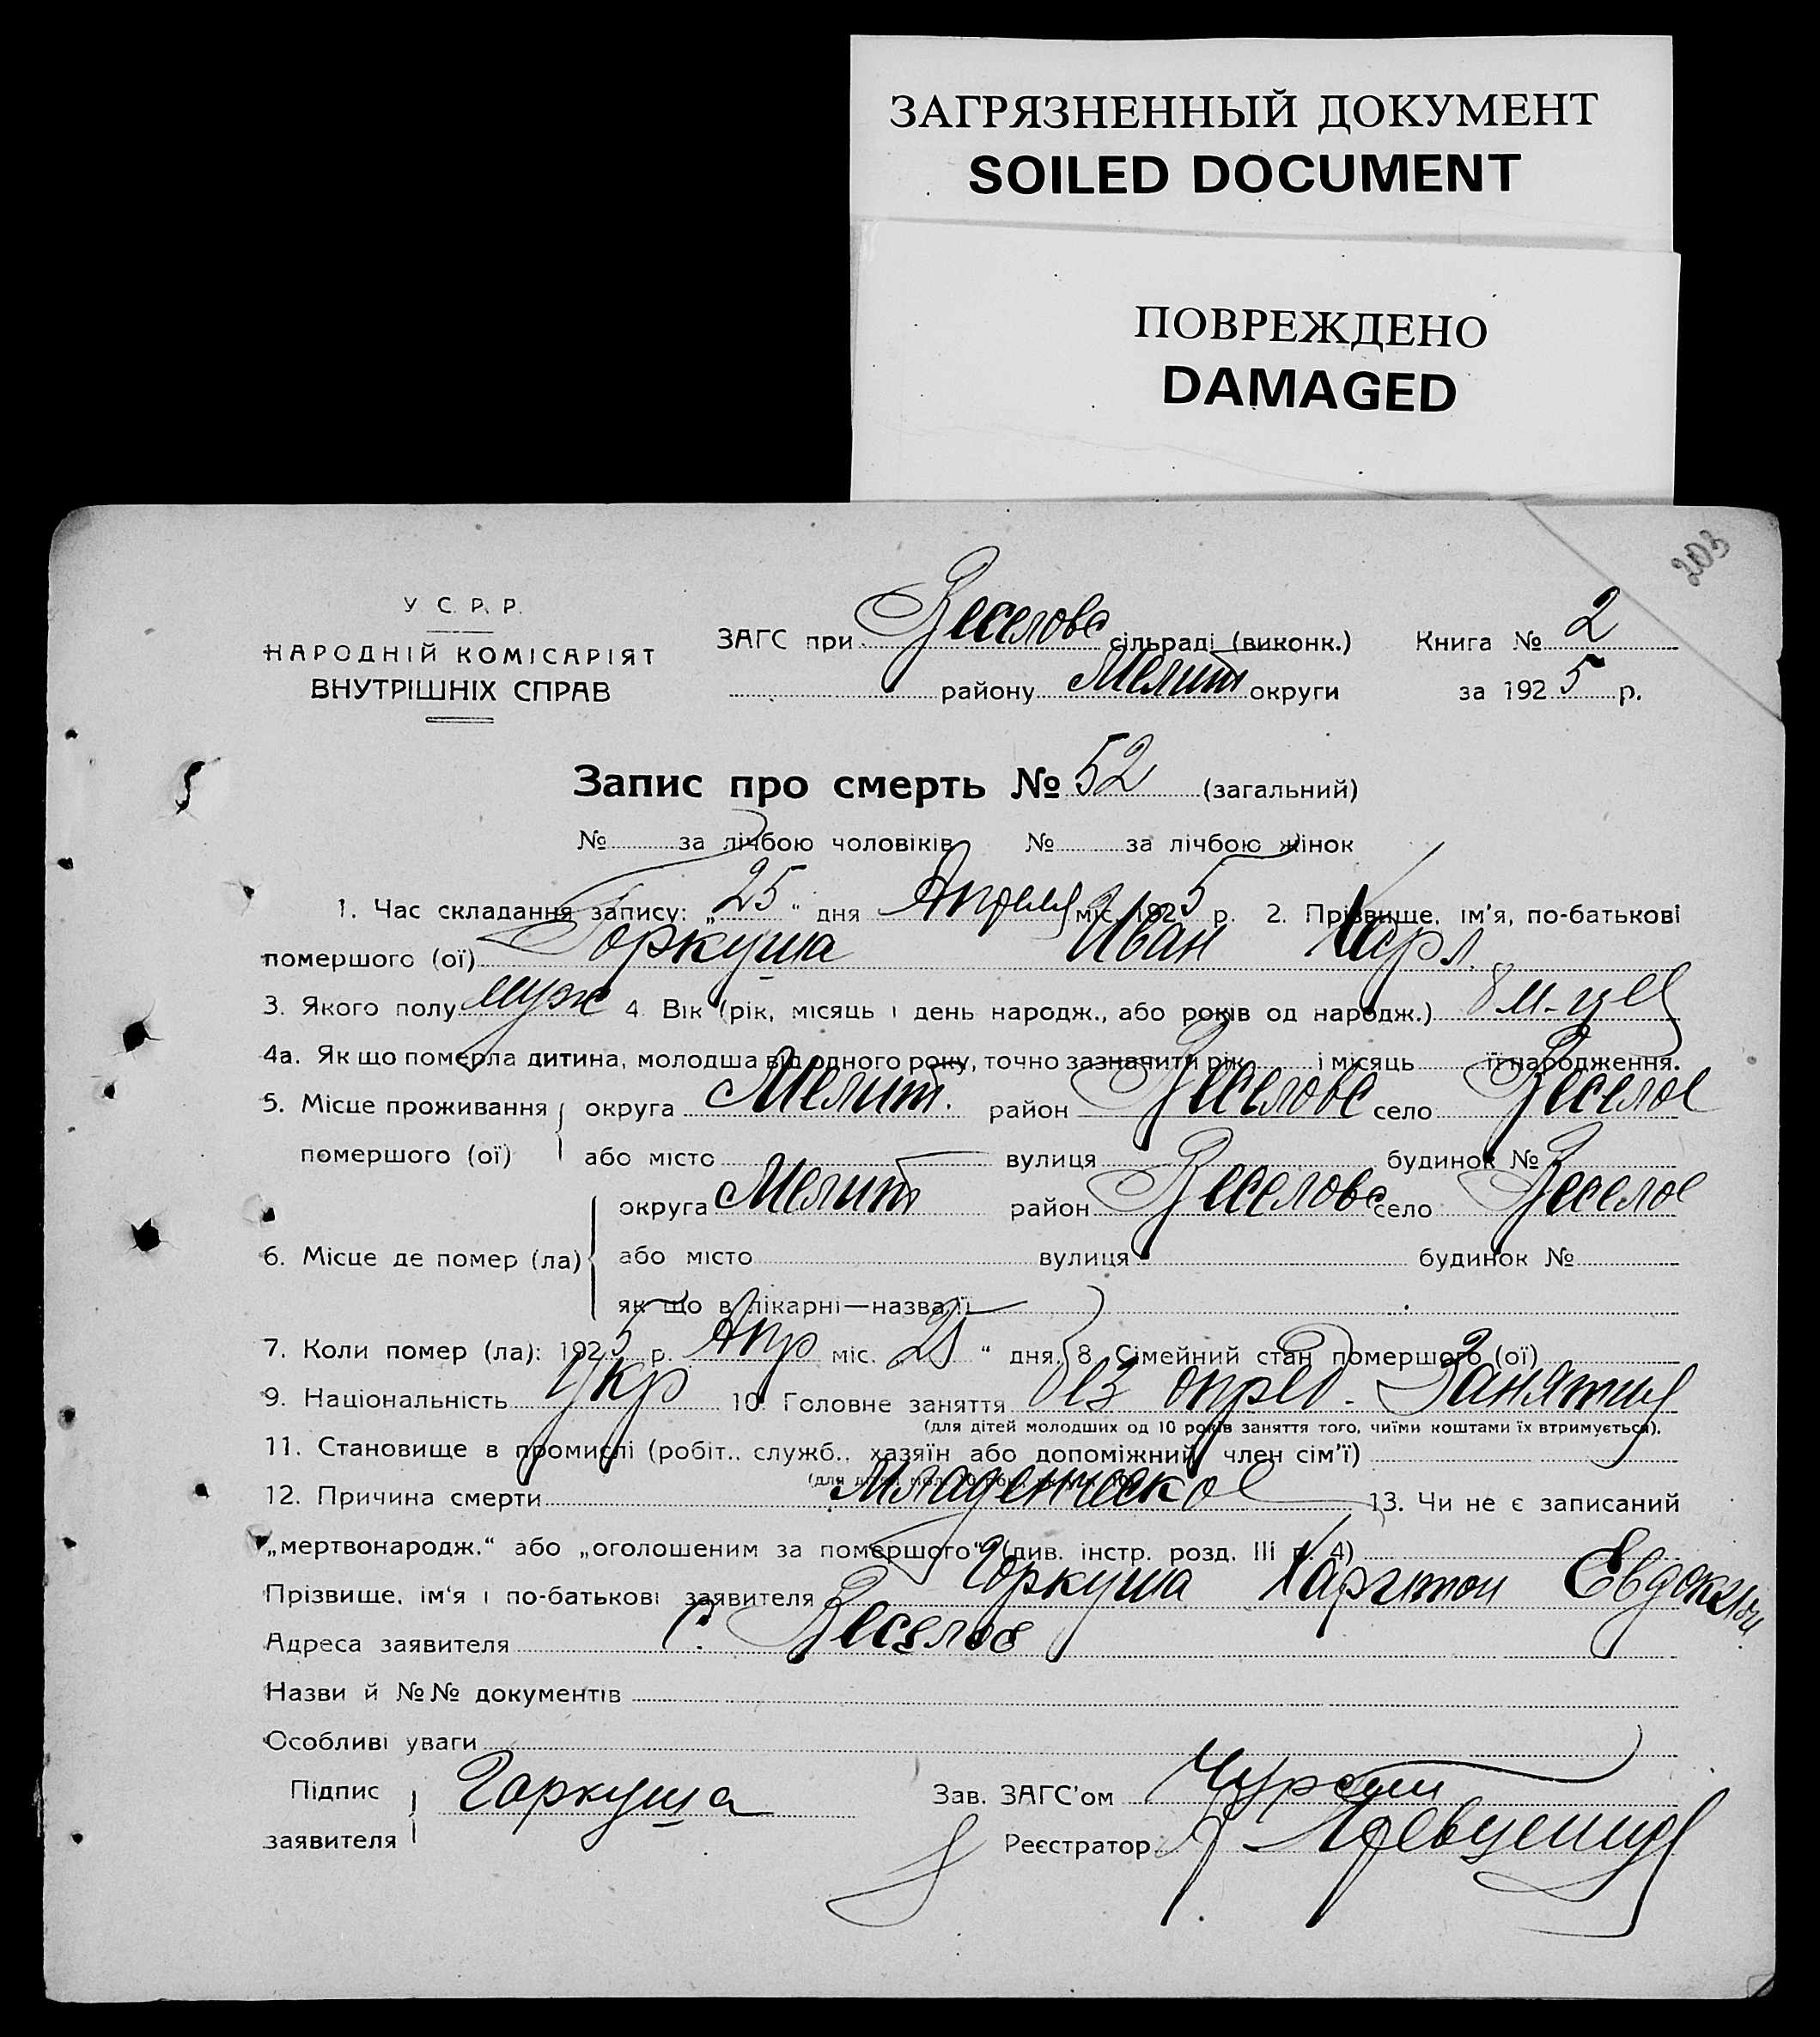 ЗАГРЯЗНЕННЫЙ ДОКУМЕНТ
SOILED DOCUMENT
ПОВРЕЖДЕНО
DAMAGED
203
У С. Р. Р.
НАРОДНІЙ КОМІСАРІЯТ
ВНУТРІШНІХ СПРАВ
ЗАГС при Веселовс сільраді (виконк.) Книга № 2
району Мелит округи за 1925 р.
Запис про смерть № 52 (загальний)
№ за лічбою чоловіків № за лічбою жінок
1. Час складання запису: „25" дня Апреля міс. 1925 р. 2. Прізвище, ім'я, по-батькові
помершого (ої) Горкуша Иван Хар.
3. Якого полу муж 4. Вік (рік, місяць і день народж., або років од народж.) 8 м-цев
4а. Як що померла дитина, молодша від одного року, точно зазначити рік і місяць її народження.
5. Місце проживання округа Мелит. район Веселовс село Веселое
помершого (ої) або місто вулиця будинок №
округа Мелит район Веселовс село Веселое
6. Місце де помер (ла) або місто вулиця будинок №
як що в лікарні—назва її
7. Коли помер (ла): 1925 р. Апр міс. 25 " дня. 8. Сімейний стан помершого (ої)
9. Національність Укр 10. Головне заняття без опред. занятия
(для дітей молодших од 10 років заняття того, чиїми коштами їх втримується).
11. Становище в промислі (робіт.. служб.. хазяїн або допоміжний член сім'ї)
12. Причина смерти Младенческое 13. Чи не є записаний
„мертвонародж." або „оголошеним за помершого" (див. інстр. розд. III п. 4)
Прізвище, ім'я і по-батькові заявителя Горкуша Харитон Евдоким
Адреса заявителя С. Веселое
Назви й №№ документів
Особливі уваги
Підпис Горкуша Зав. ЗАГС'ом
заявителя Реєстратор